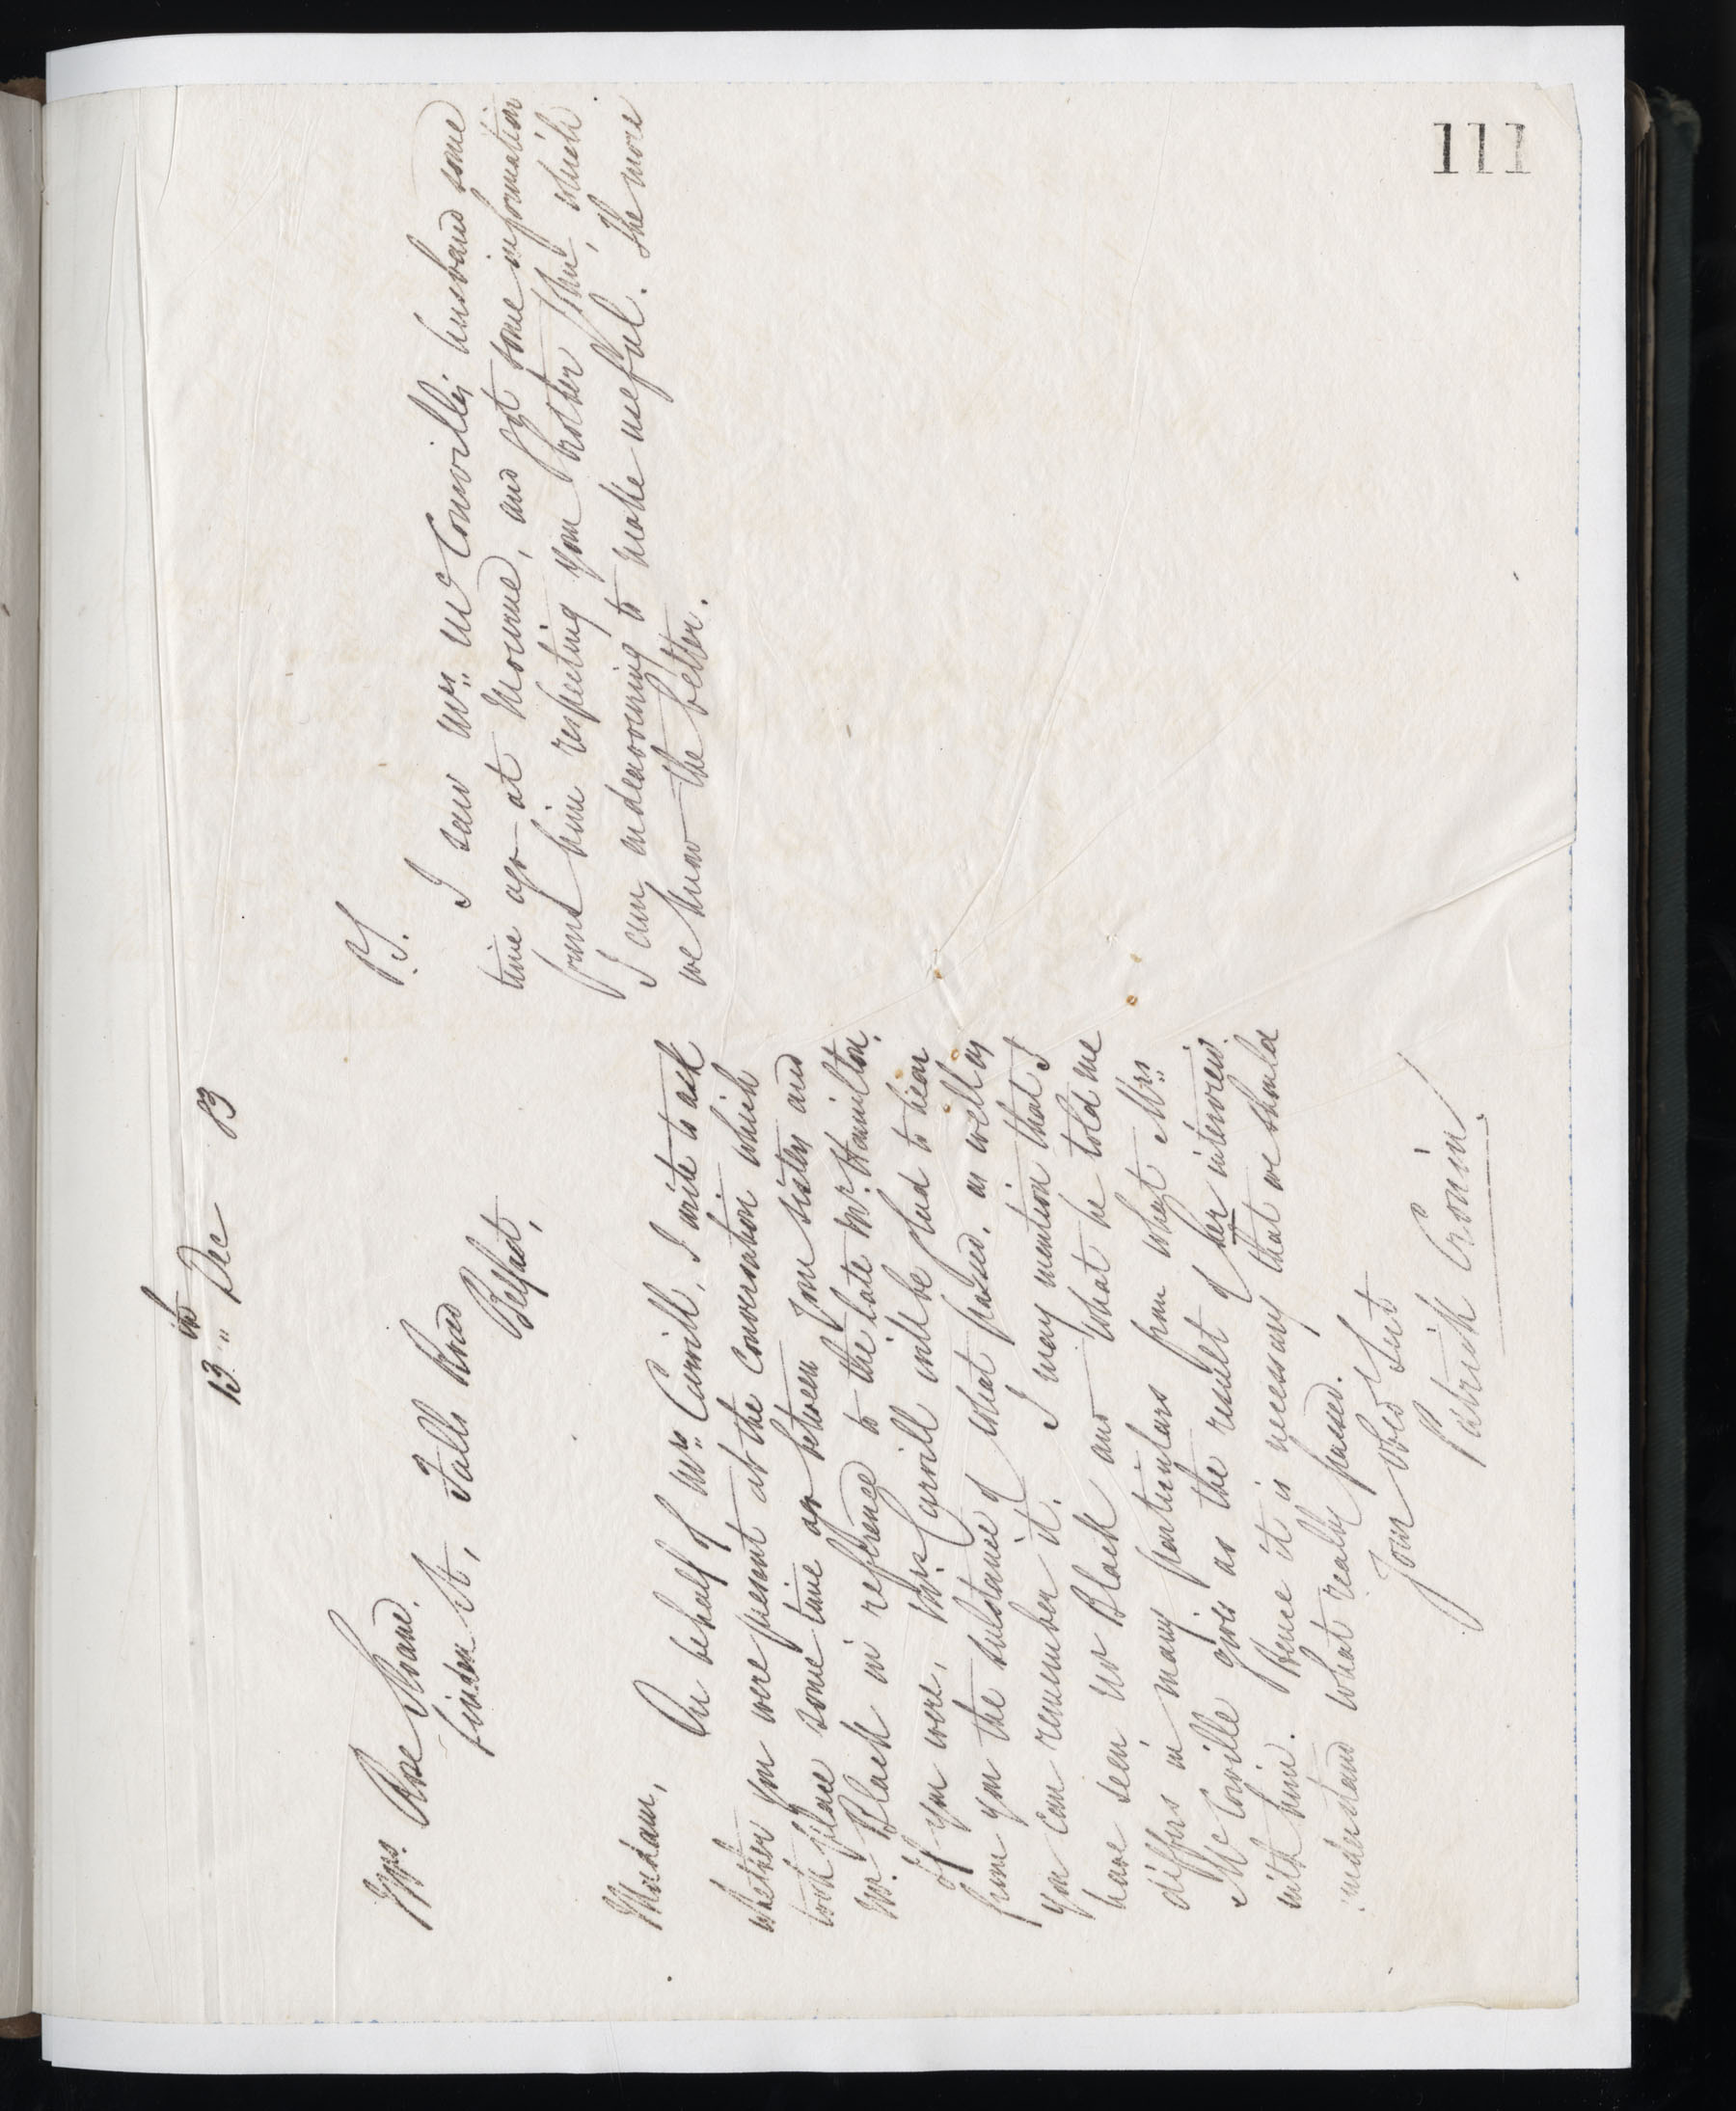 111
13th Dec 83
Rose Sloane.
Linden St, Falls Road
Belfast,
Madam,
On behalf of Mrs Carvill, I write to ask
whether you were present at the Conversation which
took place some time ago between your sister and
Mr Black in reference to the late Mr Hamilton.
If you were, Mrs Carvill will be glad to hear
from you the substance of what passed, as well as
you can remember it. I may mention that I
have seen Mr Black and what he told me
differs in many particulars from what Mrs
McConville gives as the result of her interview
with him. Hence it is necessary that we should
understand what really passed.
Your obed Svt
Patrick Cronin
P.S.
I saw Mrs McConville's husband some
time ago at Mourne, and got some information
from him respecting your brother John, which
I am endeavouring to make useful. The more
we know the better.